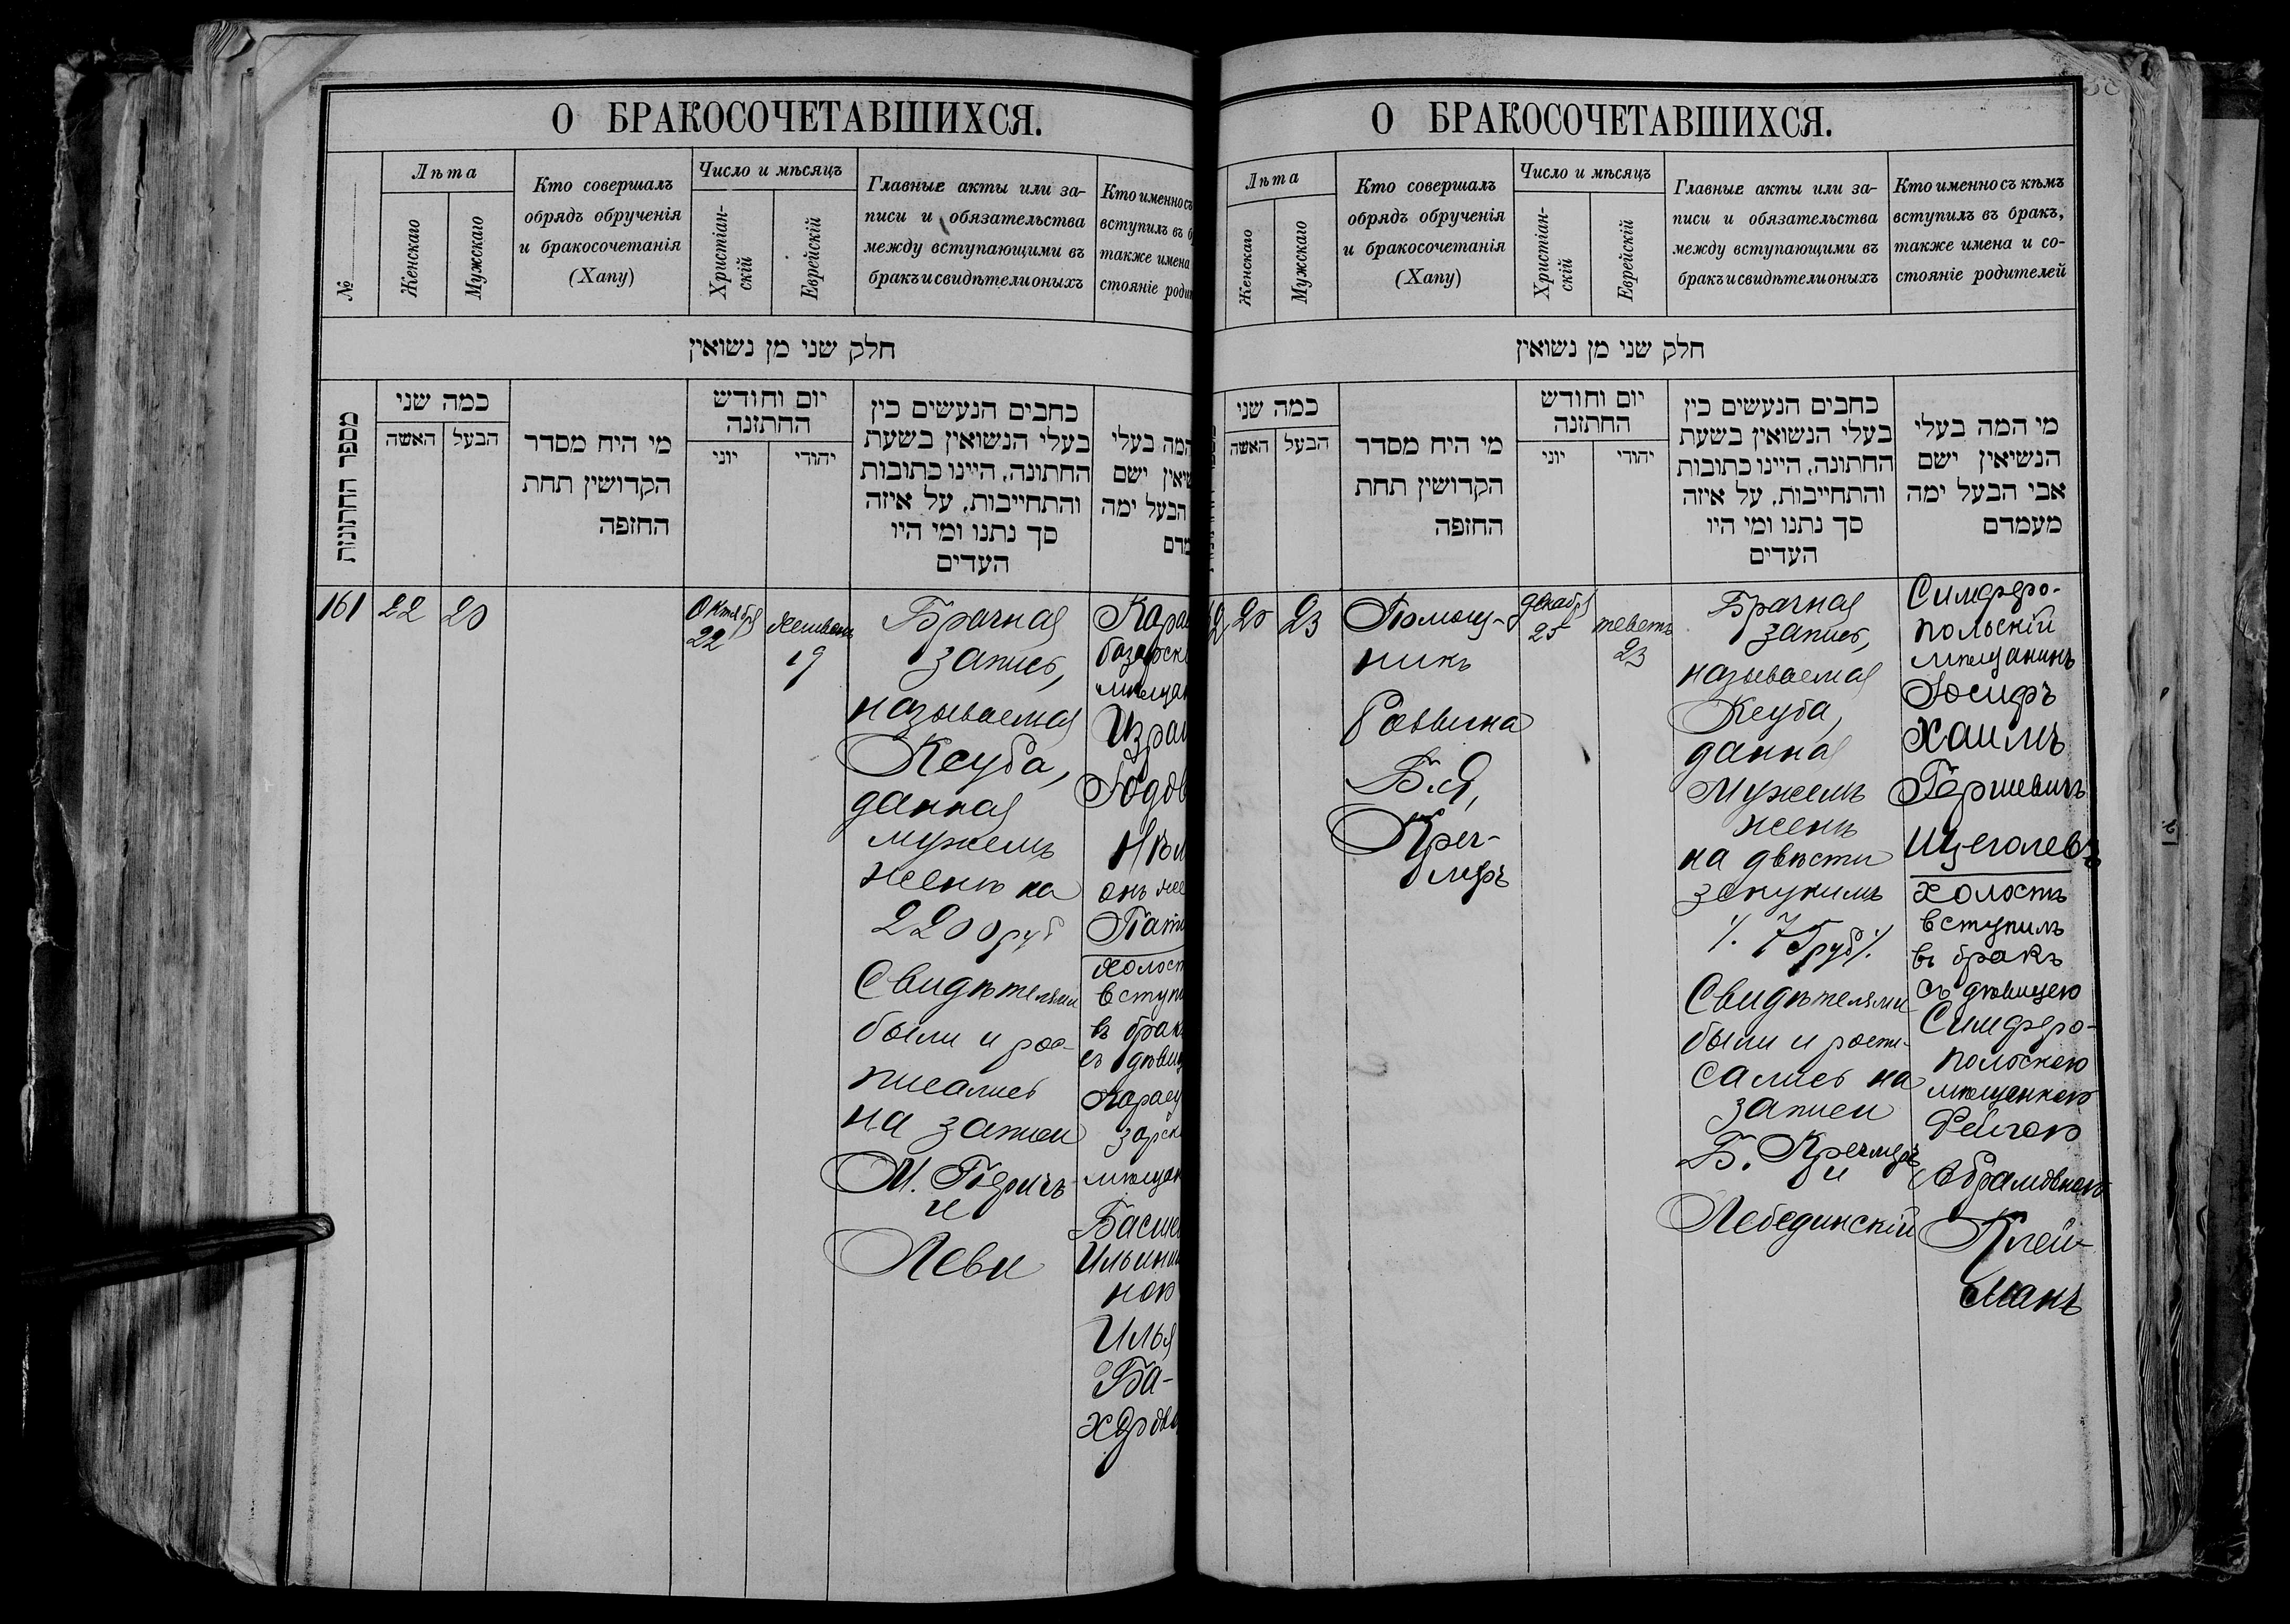 О БРАКОСОЧЕТАВШИХСЯ.
№
Лѣта
Женскаго
Мужскаго
Кто совершалъ
обрядъ обрученія
и бракосочетанія
(Хапу)
Число и мѣсяцъ
Христіан-
скій
Еврейскій
Главные акты или за-
писи и обязательства
между вступающими въ
бракъ и свидѣтели оныхъ
Кто именно съ
вступилъ въ б
также имена
стояніе роди
חלק שני מן נשואין
מספר החתונות
כמה שני
האשה
הבעל
מי היח מסדר
הקדושין תחת
החזפה
יום וחודש
החתזנה
יוני
יהודי
כחבים הנעשים כין
בעלי הנשואין בשעת
החתונה, היינו כתובות
והתחייבות, על איזה
סך נתנו ומי היו
העדים
המה בעלי
שיאין ישם
הבעל ימה
מדם
161
22
20
Октябр
22
Хешванъ
19
Брачная
запись,
называемая
Кеуба,
данная
мужемъ
женѣ на
2200 руб
Свидѣтелями
были и рос-
писались
на записи
М. Герчъ
и
Леви
Кара
базарск
мѣщан
Израи
Годов
онъ же
Пати
холост
вступи
въ брак
съ дѣвиц
Карасу
зарск
мѣщан
Басше
Ильини
ною
Илья
Ба-
херов
О БРАКОСОЧЕТАВШИХСЯ.
Лѣта
Женскаго
Мужскаго
Кто совершалъ
обрядъ обрученія
и бракосочетанія
(Хапу)
Число и мѣсяцъ
Христіан-
скій
Еврейскій
Главные акты или за-
писи и обязательства
между вступающими въ
бракъ и свидѣтели оныхъ
Кто именно съ кѣмъ
вступилъ въ бракъ,
также имена и со-
стояніе родителей
חלק שני מן נשואין
כמה שני
האשה
הבעל
מי היח מסדר
הקדושין תחת
החזפה
יום וחודש
החתזנה
יוני
יהודי
כחבים הנעשים כין
בעלי הנשואין בשעת
החתונה, היינו כתובות
והתחייבות, על איזה
סך נתנו ומי היו
העדים
מי המה בעלי
הנשיאין ישם
אבי הבעל ימה
מעמדם
2
20
23
Помощ-
никъ
Раввина
Б. Я,
Креч-
меръ
Декабр
25
теветъ
23
Брачная
запись,
называемая
Кеуба,
данная
Мужемъ
женѣ
на двѣсти
зекукимъ
1. 75 руб 1.
Свидѣтелями
были и роспи-
сались на
записи
Б. Кречмеръ
и
Лебединскій
Симферо-
польскій
мѣщанинъ
Іосифъ
Хаимъ
Гершевичъ
Щеголевъ
холостъ
вступилъ
въ бракъ
съ дѣвицею
Симферо-
польскою
мѣщанкою
Фейгою
Абрамовною
Клей-
манъ